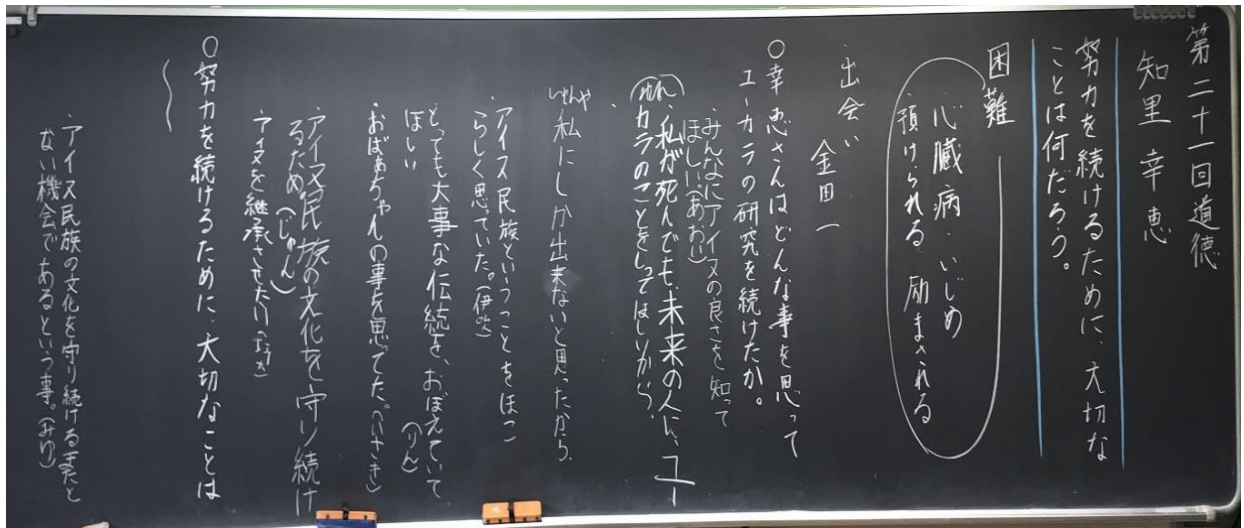 第二十一回道徳
知里 幸恵
努力を続けるために、大切な
ことは何だろう。
困難
心臓病・いじめ
預けられる 励まされる
出会い
金田一
○幸恵さんはどんな事を思って
ユーカラの研究を続けたか。
・みんなにアイヌの良さを知って
ほしい(あおい)
・私が死んでも未来の人に、ユー
カラのことをしってほしいから、
私にしか出来ないと思ったから、
アイヌ民族ということをほこ
らしく思っていた。
とっても大事な伝統を、おぼえていて
ほしい (りん)
・おばあちゃんの事を思ってた。(いさき)
アイヌ民族の文化を守り続け
るため(じゅん)
アイヌを継承させたい
○努力を続けるために、大切なことは
・アイヌ民族の文化を守り続けるまたと
ない機会であるという事。(みゆ)